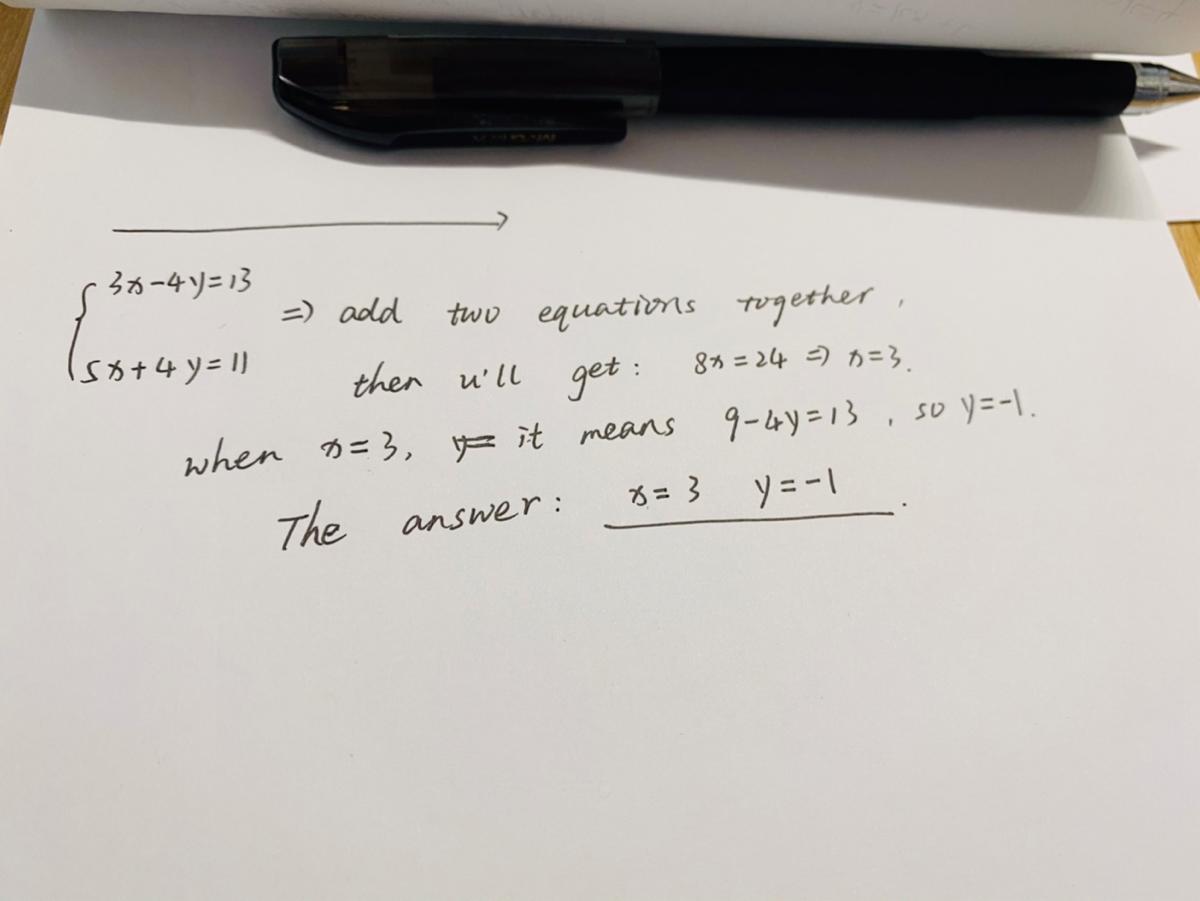 { 3x-4y=13
5x+4y=11
=> add two equations together,
then u'll get: 8x=24 => x=3.
when x=3, it means 9-4y=13, so y=-1.
The answer: x=3 y=-1.